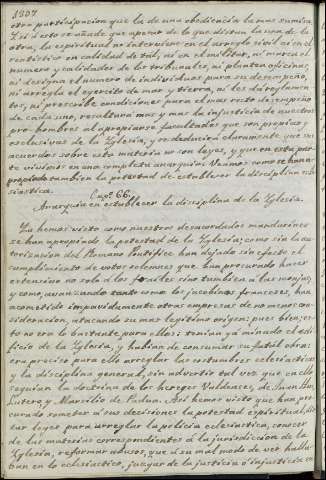 1807
otra participacion que la de una obediencia la mas sumisa.
Y si á esto se añade que apesar de lo que distan la una de la
otra, la espiritual no interviene en el arreglo civil ni en el
rentistico en calidad de tál, ni en el militar, ni marca el
numero y calidades de los tribunales, ni plantea oficinas,
ni designa el numero de individuos para su desempeño,
ni arregla el egercito de mar y tierra, ni les dá reglamen-
tos, ni prescribe condiciones para el mas recto desempeño
de cada uno, resaltara mas y mas la injusticia de nuestros
pro-hombres al apropiarse facultades que son propias y
esclusivas de la Yglesia, y se deducirá claramente que sus
acuerdos sobre esta materia no son leyes, y que en esta par-
te vivimos en una completa anarquia. Veamos como se han a-
propiado tambien la potestad de establecer la disciplina ecle-
siastica.
Capo. 66.
Anarquia en establecer la disciplina de la Yglesia.
Ya hemos visto como nuestros desacordados mandarines
se han apropiado la potestad de la Yglesia; como sin la au-
torizacion del Romano Pontifice han dejado sin efecto el
cumplimiento de votos solemnes que han procurado hacer
estensivo no solo á los frailes, sino tambien á las monjas;
y como, avanzando tanto como los jacobinos franceses, han
acometido impavidamente otras empresas de no menor con-
sideracion, atacando su mas legitimo origen: pues bien; es-
to no era lo bastante para ellos: tenian yá minado el edi-
ficio de la Yglesia, y habian de consumar su fatál obra:
era preciso para ello arreglar las costumbres eclesiasticas
y la disciplina general, sin advertir tal vez que en ello
seguian la doctrina de los hereges Valdenses, de Juan Hus,
Lutero, y Marsilio de Padua. Asi hemos visto que han pro-
curado someter á sus decisiones la potestad espiritual, dic-
tar leyes para arreglar la policia eclesiastica, conocer
de las materias correspondientes á la jurisdiccion de la
Yglesia, reformar abusos, que á su mal modo de ver halla-
ban en lo eclesiastico, juzgar de la justicia ó injusticia en